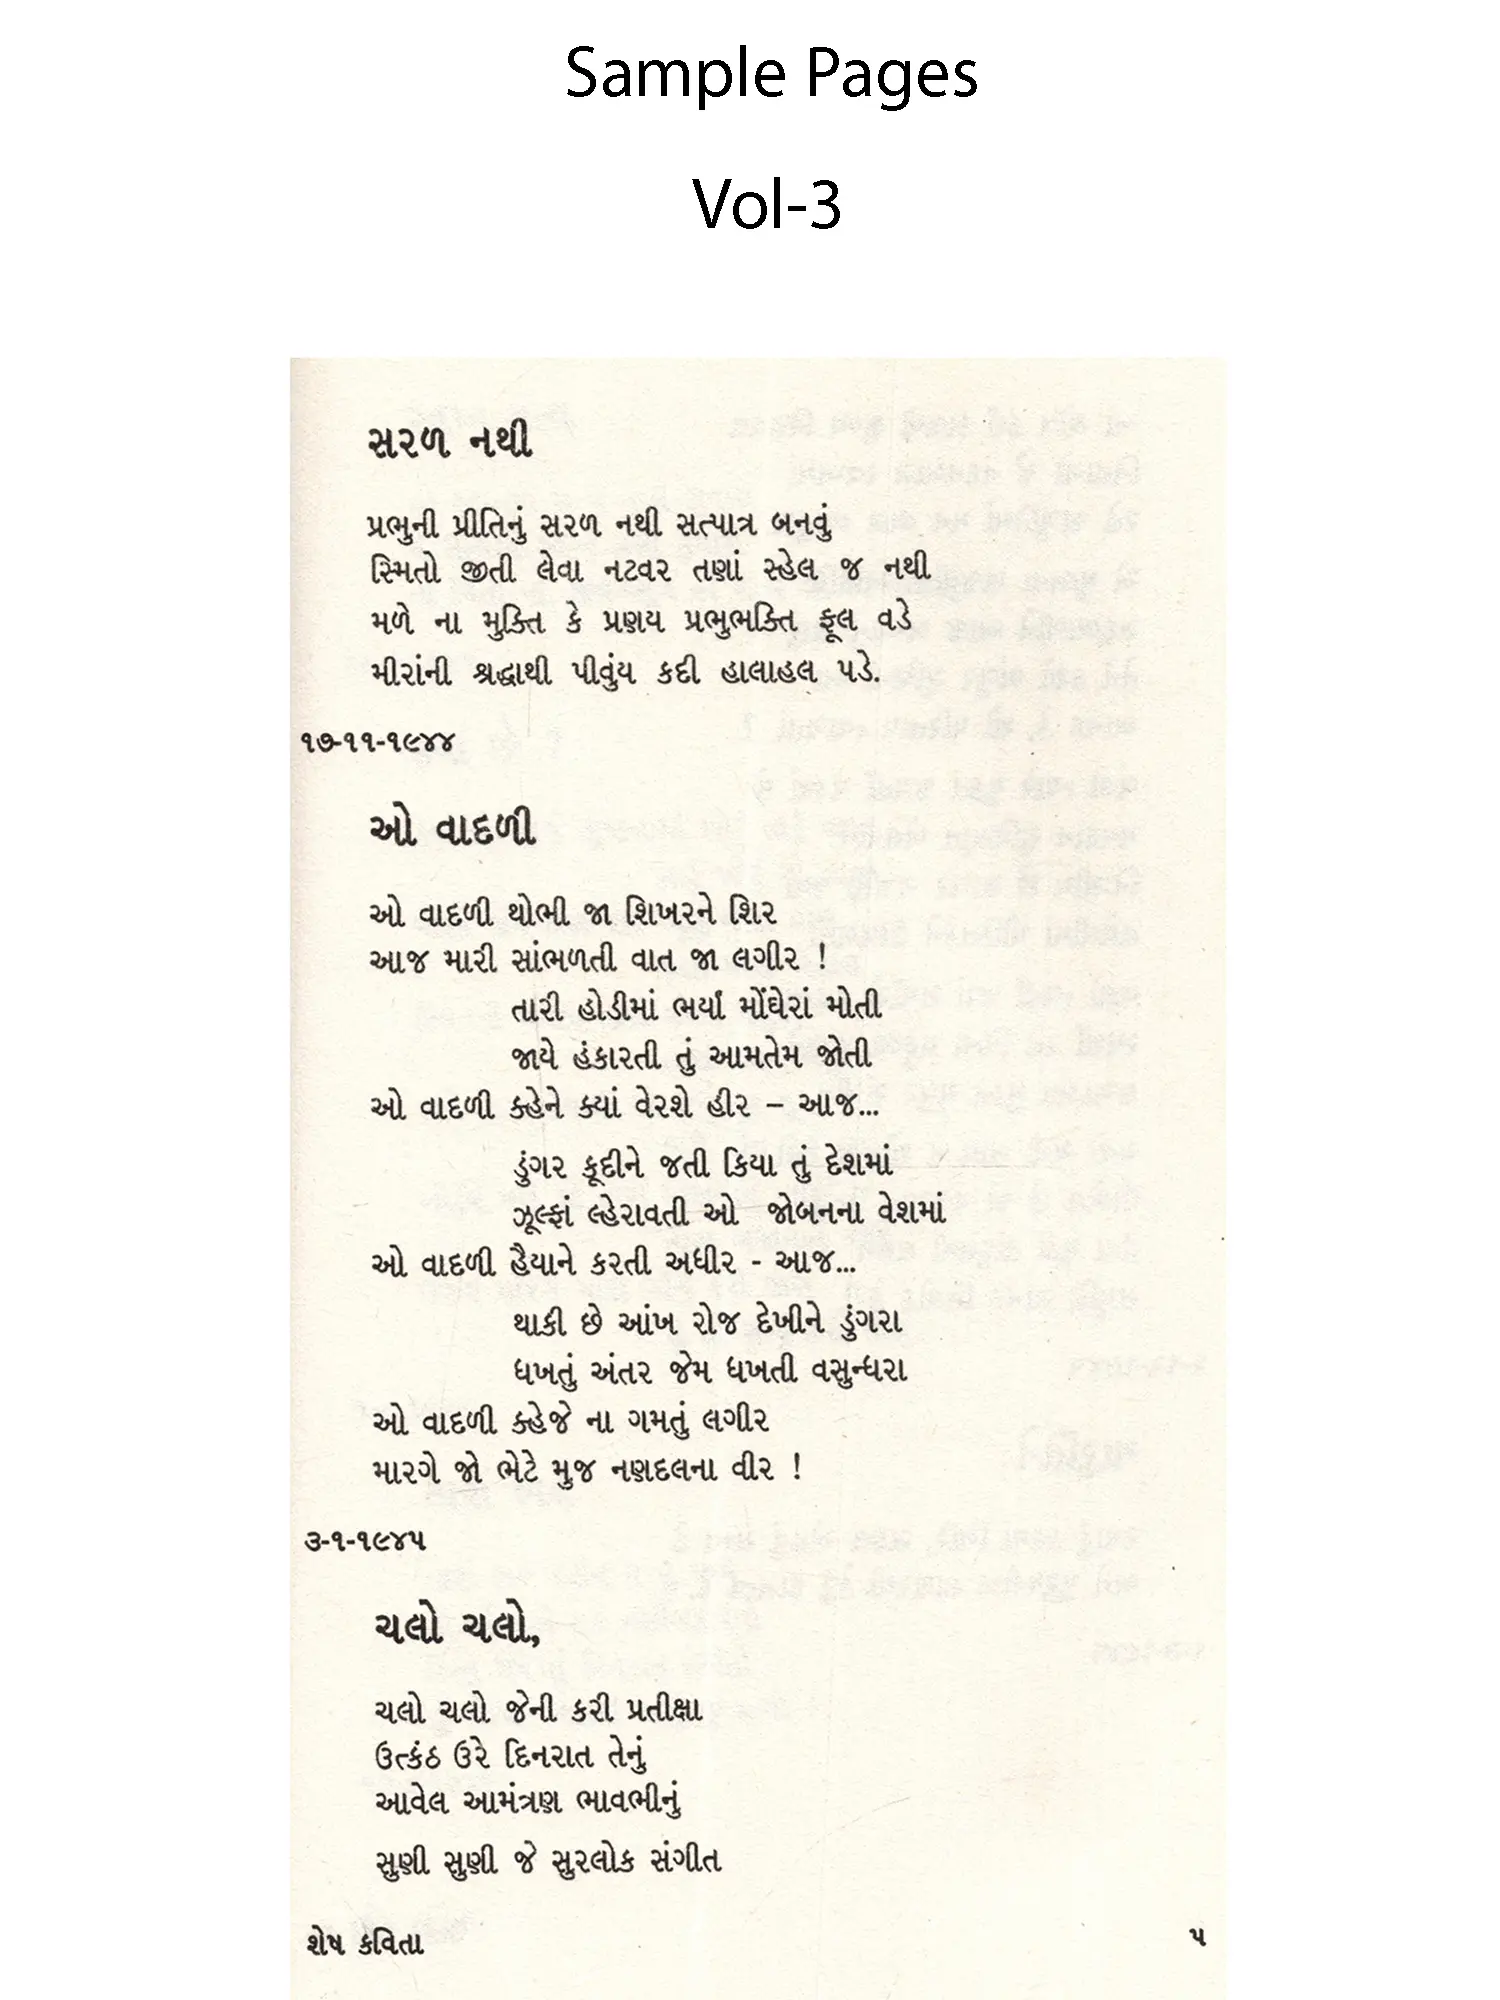 Sample Pages
Vol-3
સરળ નથી
પ્રભુની પ્રીતિનું સરળ નથી સત્પાત્ર બનવું
સ્મિતો જીતી લેવા નટવર તણાં સ્હેલ જ નથી
મળે ના મુક્તિ કે પ્રણય પ્રભુભક્તિ ફૂલ વડે
મીરાંની શ્રદ્ધાથી પીવુંય કદી હાલાહલ પડે.
૧૭-૧૧-૧૯૪૪
ઓ વાદળી
ઓ વાદળી થોભી જા શિખરને શિર
આજ મારી સાંભળતી વાત જા લગીર !
તારી હોડીમાં ભર્યાં મોંઘેરાં મોતી
જાયે હંકારતી તું આમતેમ જોતી
ઓ વાદળી ક્હેને ક્યાં વેરશે હીર – આજ...
ડુંગર કૂદીને જતી કિયા તું દેશમાં
ઝૂલ્ફાં લ્હેરાવતી ઓ જોબનના વેશમાં
ઓ વાદળી હૈયાને કરતી અધીર - આજ...
થાકી છે આંખ રોજ દેખીને ડુંગરા
ધખતું અંતર જેમ ધખતી વસુન્ધરા
ઓ વાદળી ક્હેજે ના ગમતું લગીર
મારગે જો ભેટે મુજ નણદલના વીર !
૩-૧-૧૯૪૫
ચલો ચલો,
ચલો ચલો જેની કરી પ્રતીક્ષા
ઉત્કંઠ ઉરે દિનરાત તેનું
આવેલ આમંત્રણ ભાવભીનું
સુણી સુણી જે સુરલોક સંગીત
શેષ કવિતા
૫